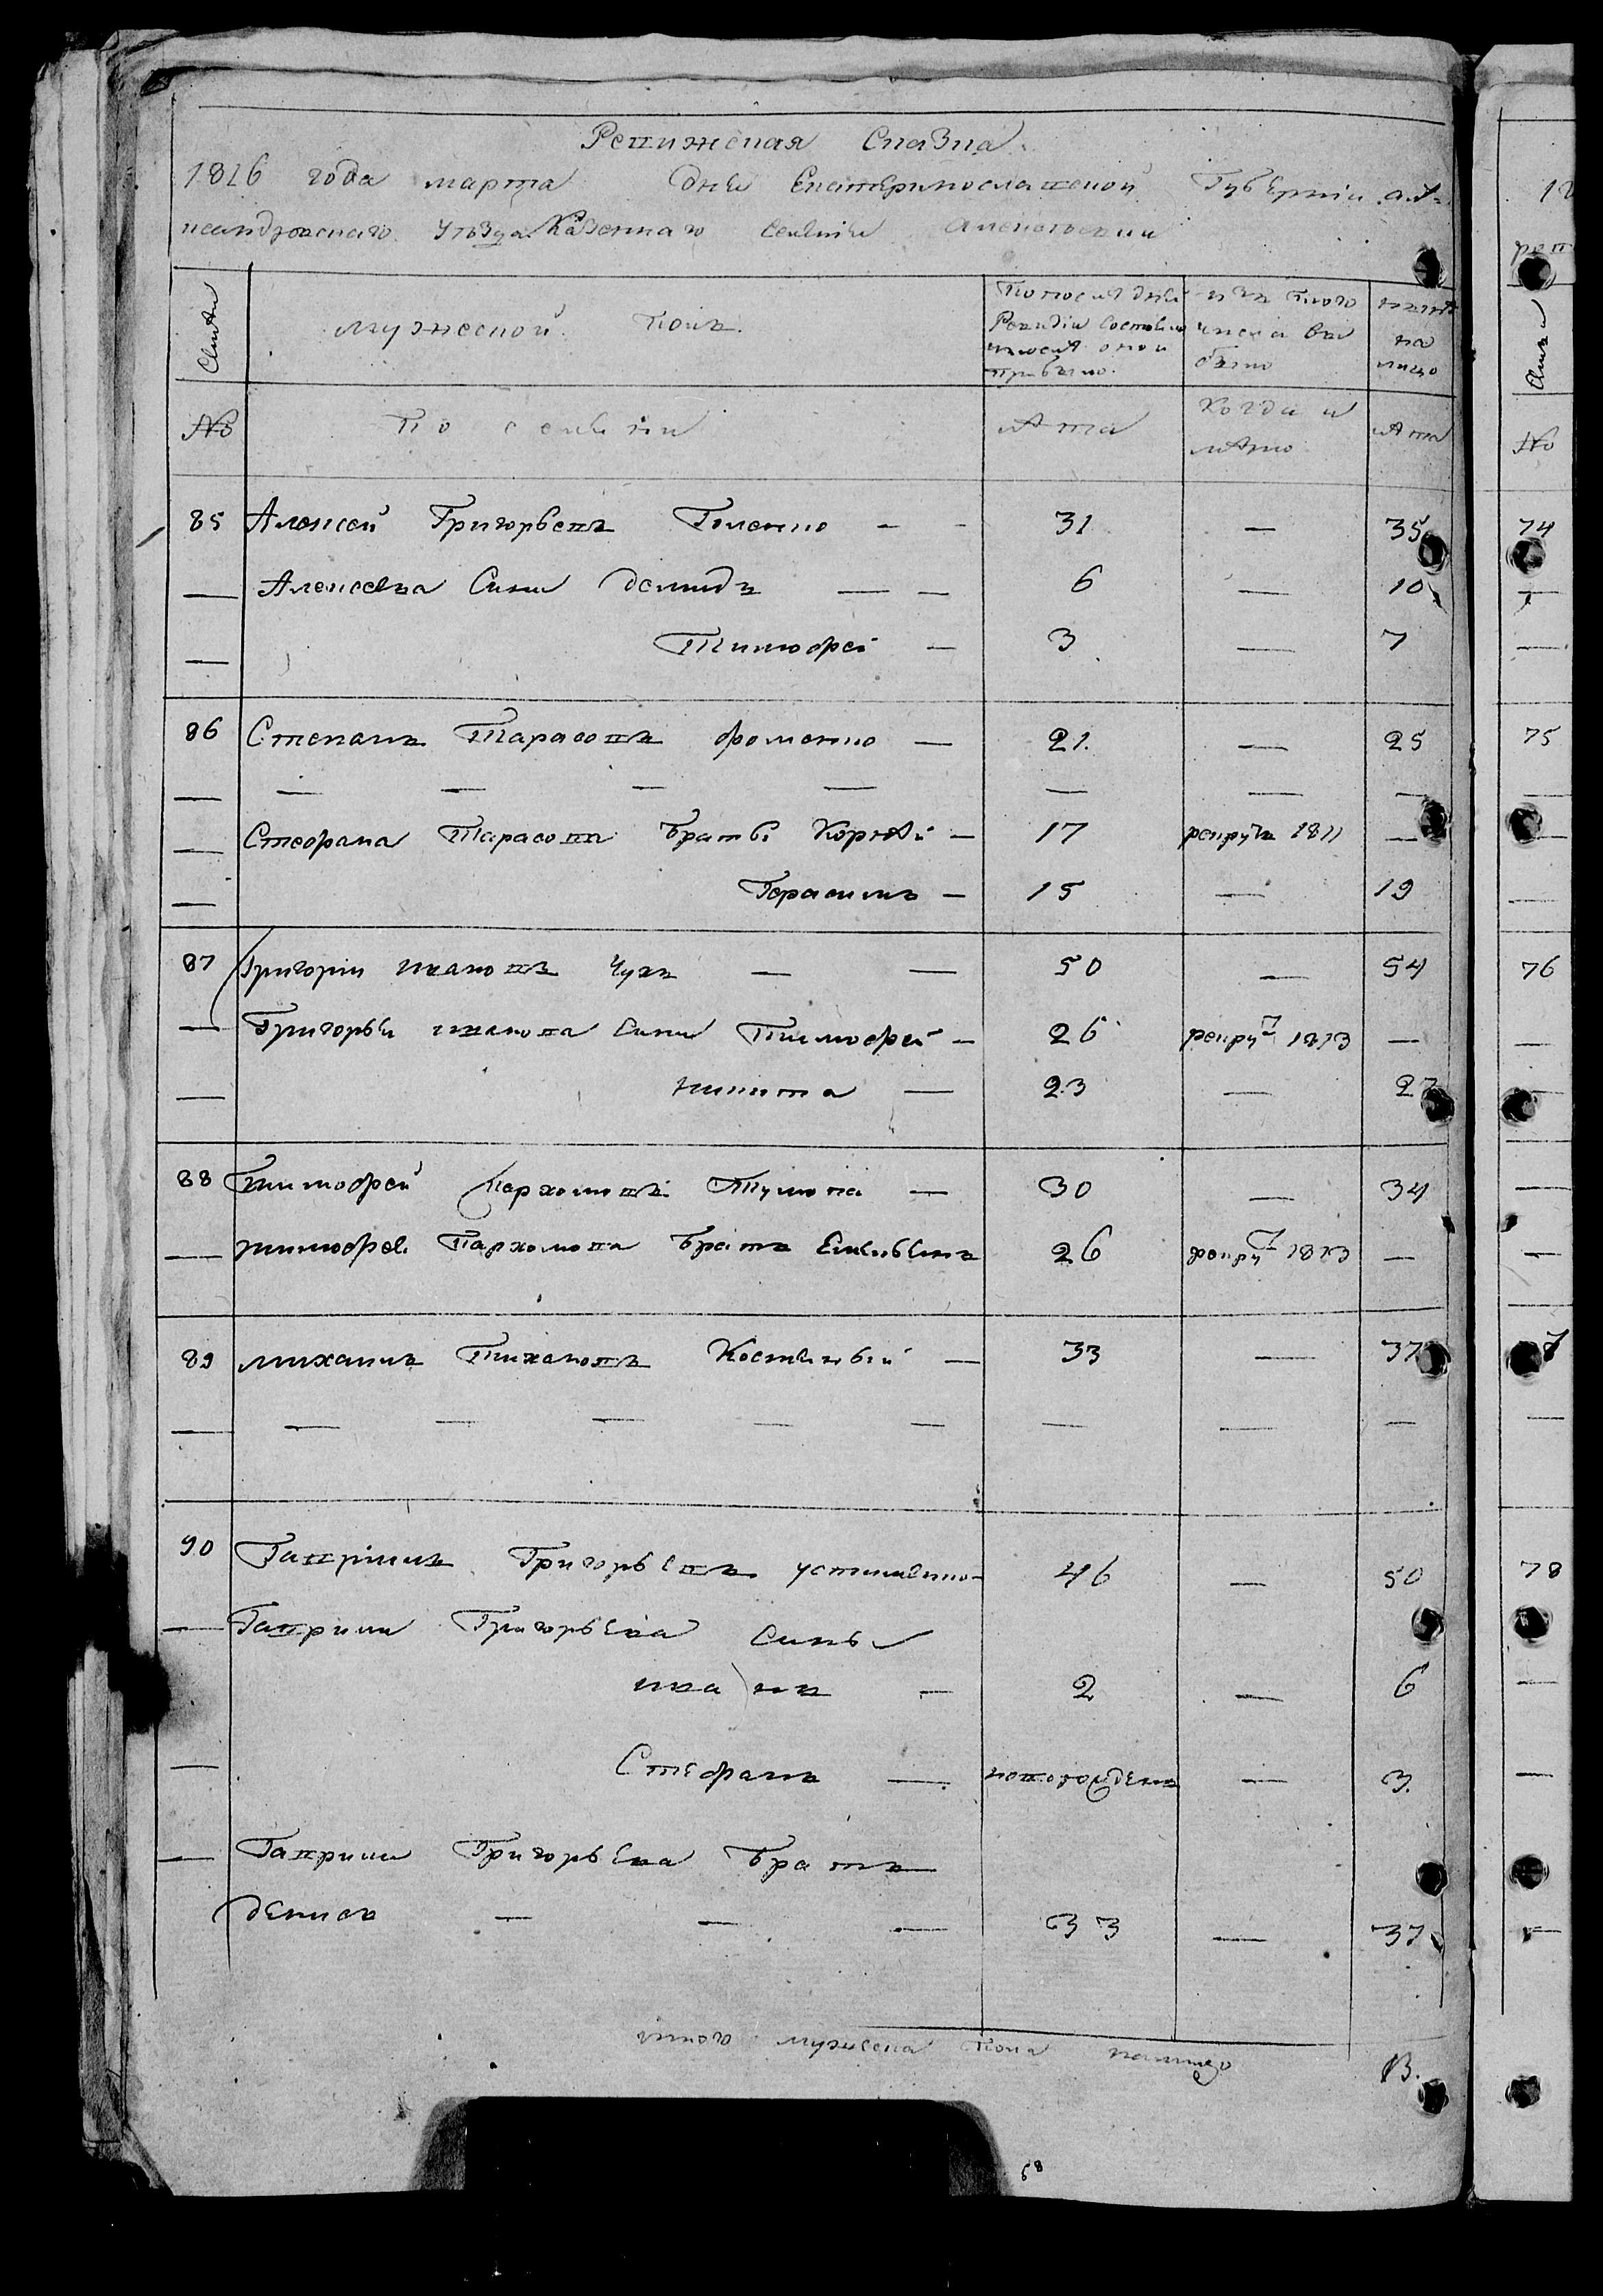 Ревижская Сказка
1816 года марта дня Екатеринославской Губернии алѣ=
ксандровского уѣзда Казенного селения Алексеевки
Семьи мужеской полъ По последней Ревизіи состояло и после оной прибыло изъ того числа вы было нынѣ на лицо
№ По селению лѣта Когда и лѣто лѣта
85 Алексей Григорьевъ Голенко — 31 — 35
— Алексеева Сини демидъ — — 6 — 10
— Тимофей — 3 — 7
86 Степанъ Тарасовъ фоменко — 21 — 25
— — — — — — — —
— Стефана Тарасова Братьі Корнѣй — 17 рекрутъ 1811 —
— Герасимъ — 15 — 19
87 Григории ивановъ Чухъ — — 50 — 54
— Григорьи иванова Сини Тимофей — 26 рекрут 1813 —
— никита — 23 — 27
88 Тимофей Пархомовъ Тумка — 30 — 34
— тимофея Пархомова Братъ Емельянъ 26 рекрут 1813 —
89 михаилъ Тихановъ Костинъій — 33 — 37
— — — — — — — — —
90 Гаврилъ Григорьевъ устименко — 46 — 50
— Гаврили Григорьева Сини
иванъ — 2 — 6
— Стефанъ — новорожденъ — 3
— Гаврили Григорьева Братъ
денисъ — — — 33 — 37
итого мужеска пола налицо 13.
68
74
75
76
78